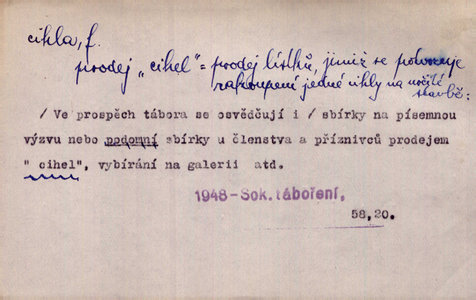 cihla, f.
prodej „cihel" = prodej lístků, jimiž se potvrzuje
zakoupení jedné cihly na určité
stavbě:
/ Ve prospěch tábora se osvědčují i / sbírky na písemnou
výzvu nebo podomní sbírky u členstva a příznivců prodejem
" cihel", vybírání na galerii atd.
1948-Sok. táboření,
58,20.